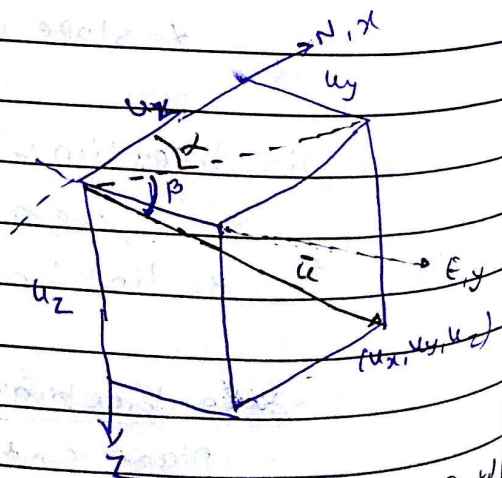 N, x
uy
ux
α
β
E, y
ū
uz
(ux, uy, uz)
Z